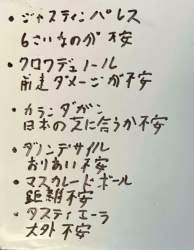 ・ジャスティンパレス
6さいなのが不安
・クロワデュノール
前走ダメージが不安
・カランダガン
日本の芝に合うか不安
・ダノンデサイル
おりあい不安
・マスカレードボール
距離不安
・タスティエーラ
大外不安